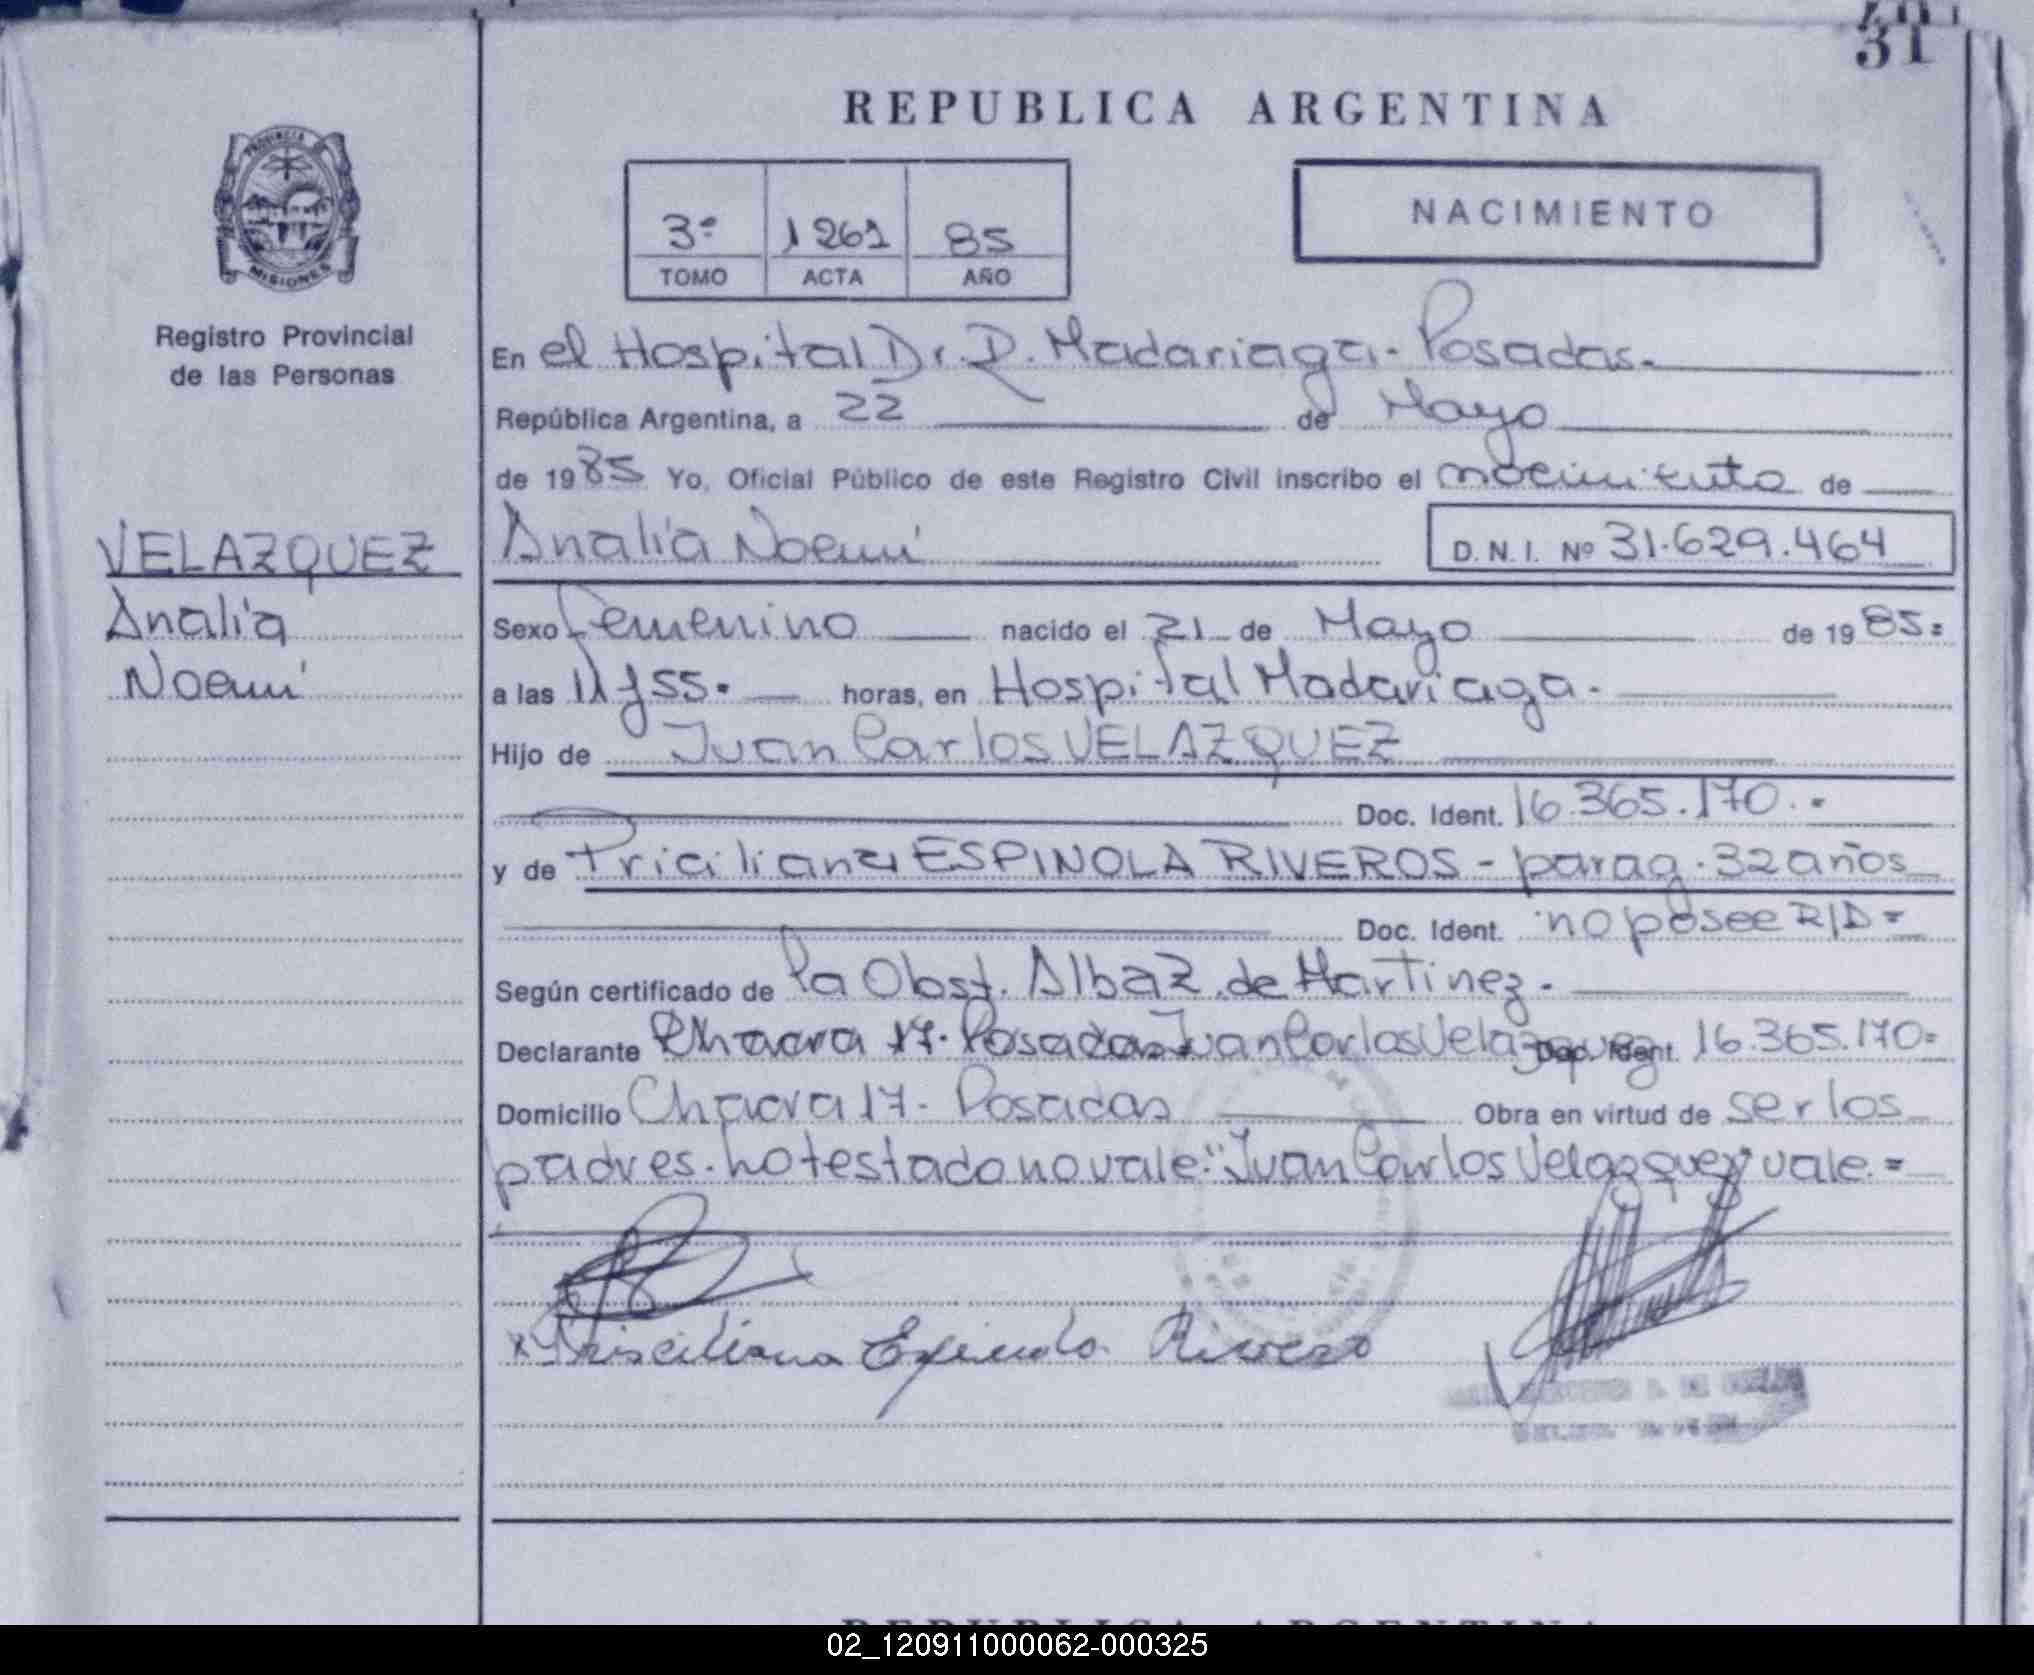 31
REPUBLICA ARGENTINA
PROVINCIA
MISIONES
Registro Provincial
de las Personas
3º 1261 85
TOMO ACTA AÑO
NACIMIENTO
En el Hospital Dr. R. Madariaga - Posadas.
República Argentina, a 22 de Mayo
de 1985 Yo, Oficial Público de este Registro Civil inscribo el nacimiento de
VELAZQUEZ
Analía
Noemí
Analía Noemí D. N. I. Nº 31.629.464
Sexo Femenino nacido el 21 de Mayo de 1985=
a las 11 y 55. horas, en Hospital Madariaga.
Hijo de Juan Carlos VELAZQUEZ
Doc. Ident. 16.365.170.-
y de Priciliana ESPINOLA RIVEROS - parag. 32 años
Doc. Ident. no posee R/D=
Según certificado de la Obst. Alba Z. de Martinez.
Declarante Chacra 17. Posadas Juan Carlos Velazquez Doc. Ident. 16.365.170=
Domicilio Chacra 17. Posadas Obra en virtud de ser los
padres. lo testado no vale. "Juan Carlos Velazquez" vale.=
x Prisciliana Espinola Rivero
REPUBLICA ARGENTINA
02_120911000062-000325